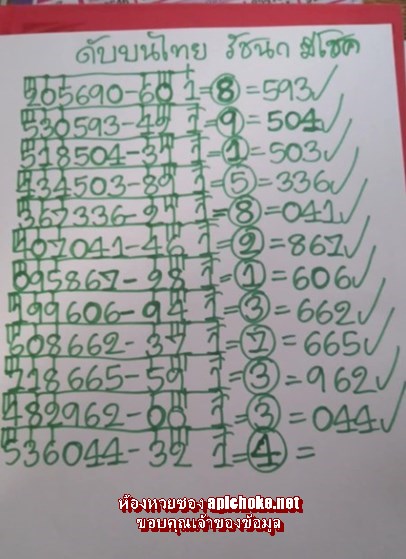 ดับบนไทย รัชนก มีโชค
205690-60 1=8=593✓
530593-49 1=9=504✓
518504-37 1=1=503✓
434503-89 1=5=336✓
367336-27 1=8=041✓
407041-46 1=2=867✓
095867-98 1=1=606✓
199606-94 1=3=662✓
608662-37 1=7=665✓
718665-59 1=3=962✓
482962-00 1=3=044✓
536044-32 1=4=
ห้องหวยซองapichoke.net
ขอบคุณเจ้าของข้อมูล